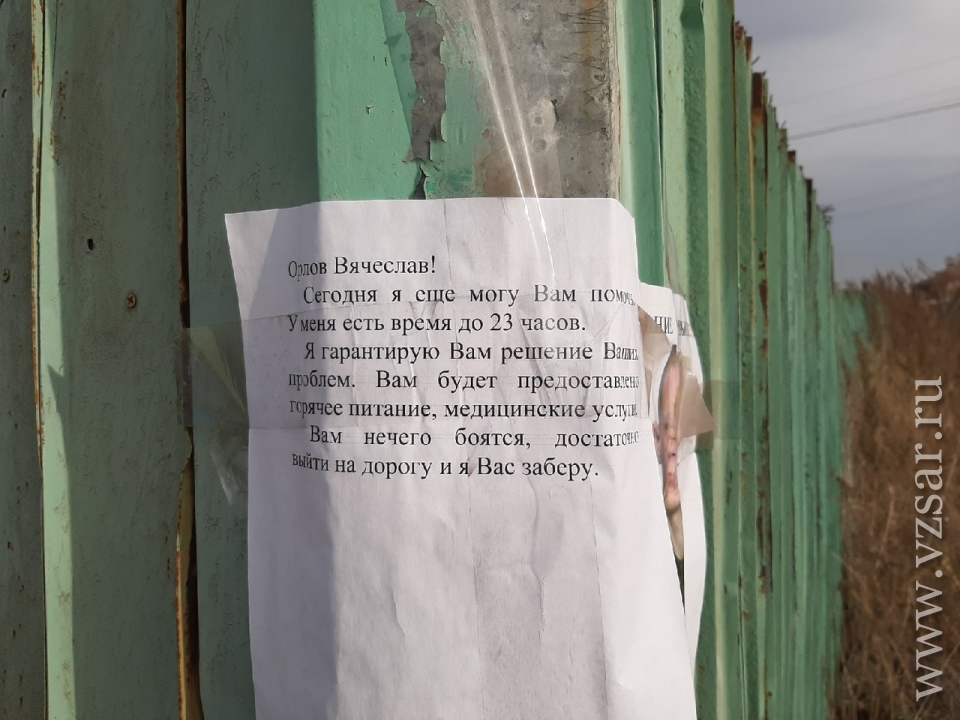 Орлов Вячеслав!
Сегодня я еще могу Вам помочь.
У меня есть время до 23 часов.
Я гарантирую Вам решение Ваших
проблем. Вам будет предоставлено
горячее питание, медицинские услуги.
Вам нечего боятся, достаточно
выйти на дорогу и я Вас заберу.
www.vzsar.ru